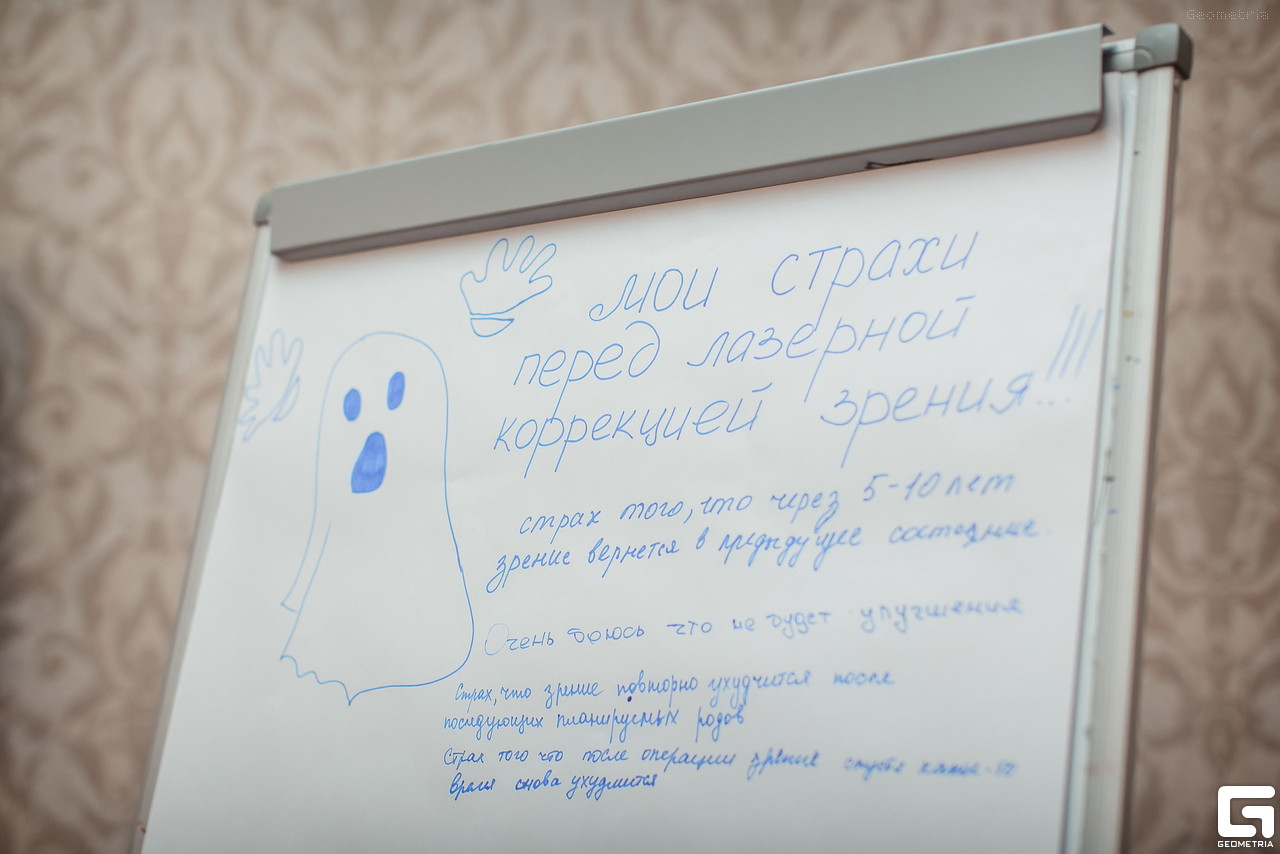 Geometria
мои страхи
перед лазерной
коррекцией зрения...!!!
страх того, что через 5-10 лет
зрение вернется в предыдущее состояние
Очень боюсь что не будет улучшения
Страх, что зрение повторно ухудшится после
последующих планируемых родов
Страх того что после операции зрение спустя какое-то
время снова ухудшится
GEOMETRIA